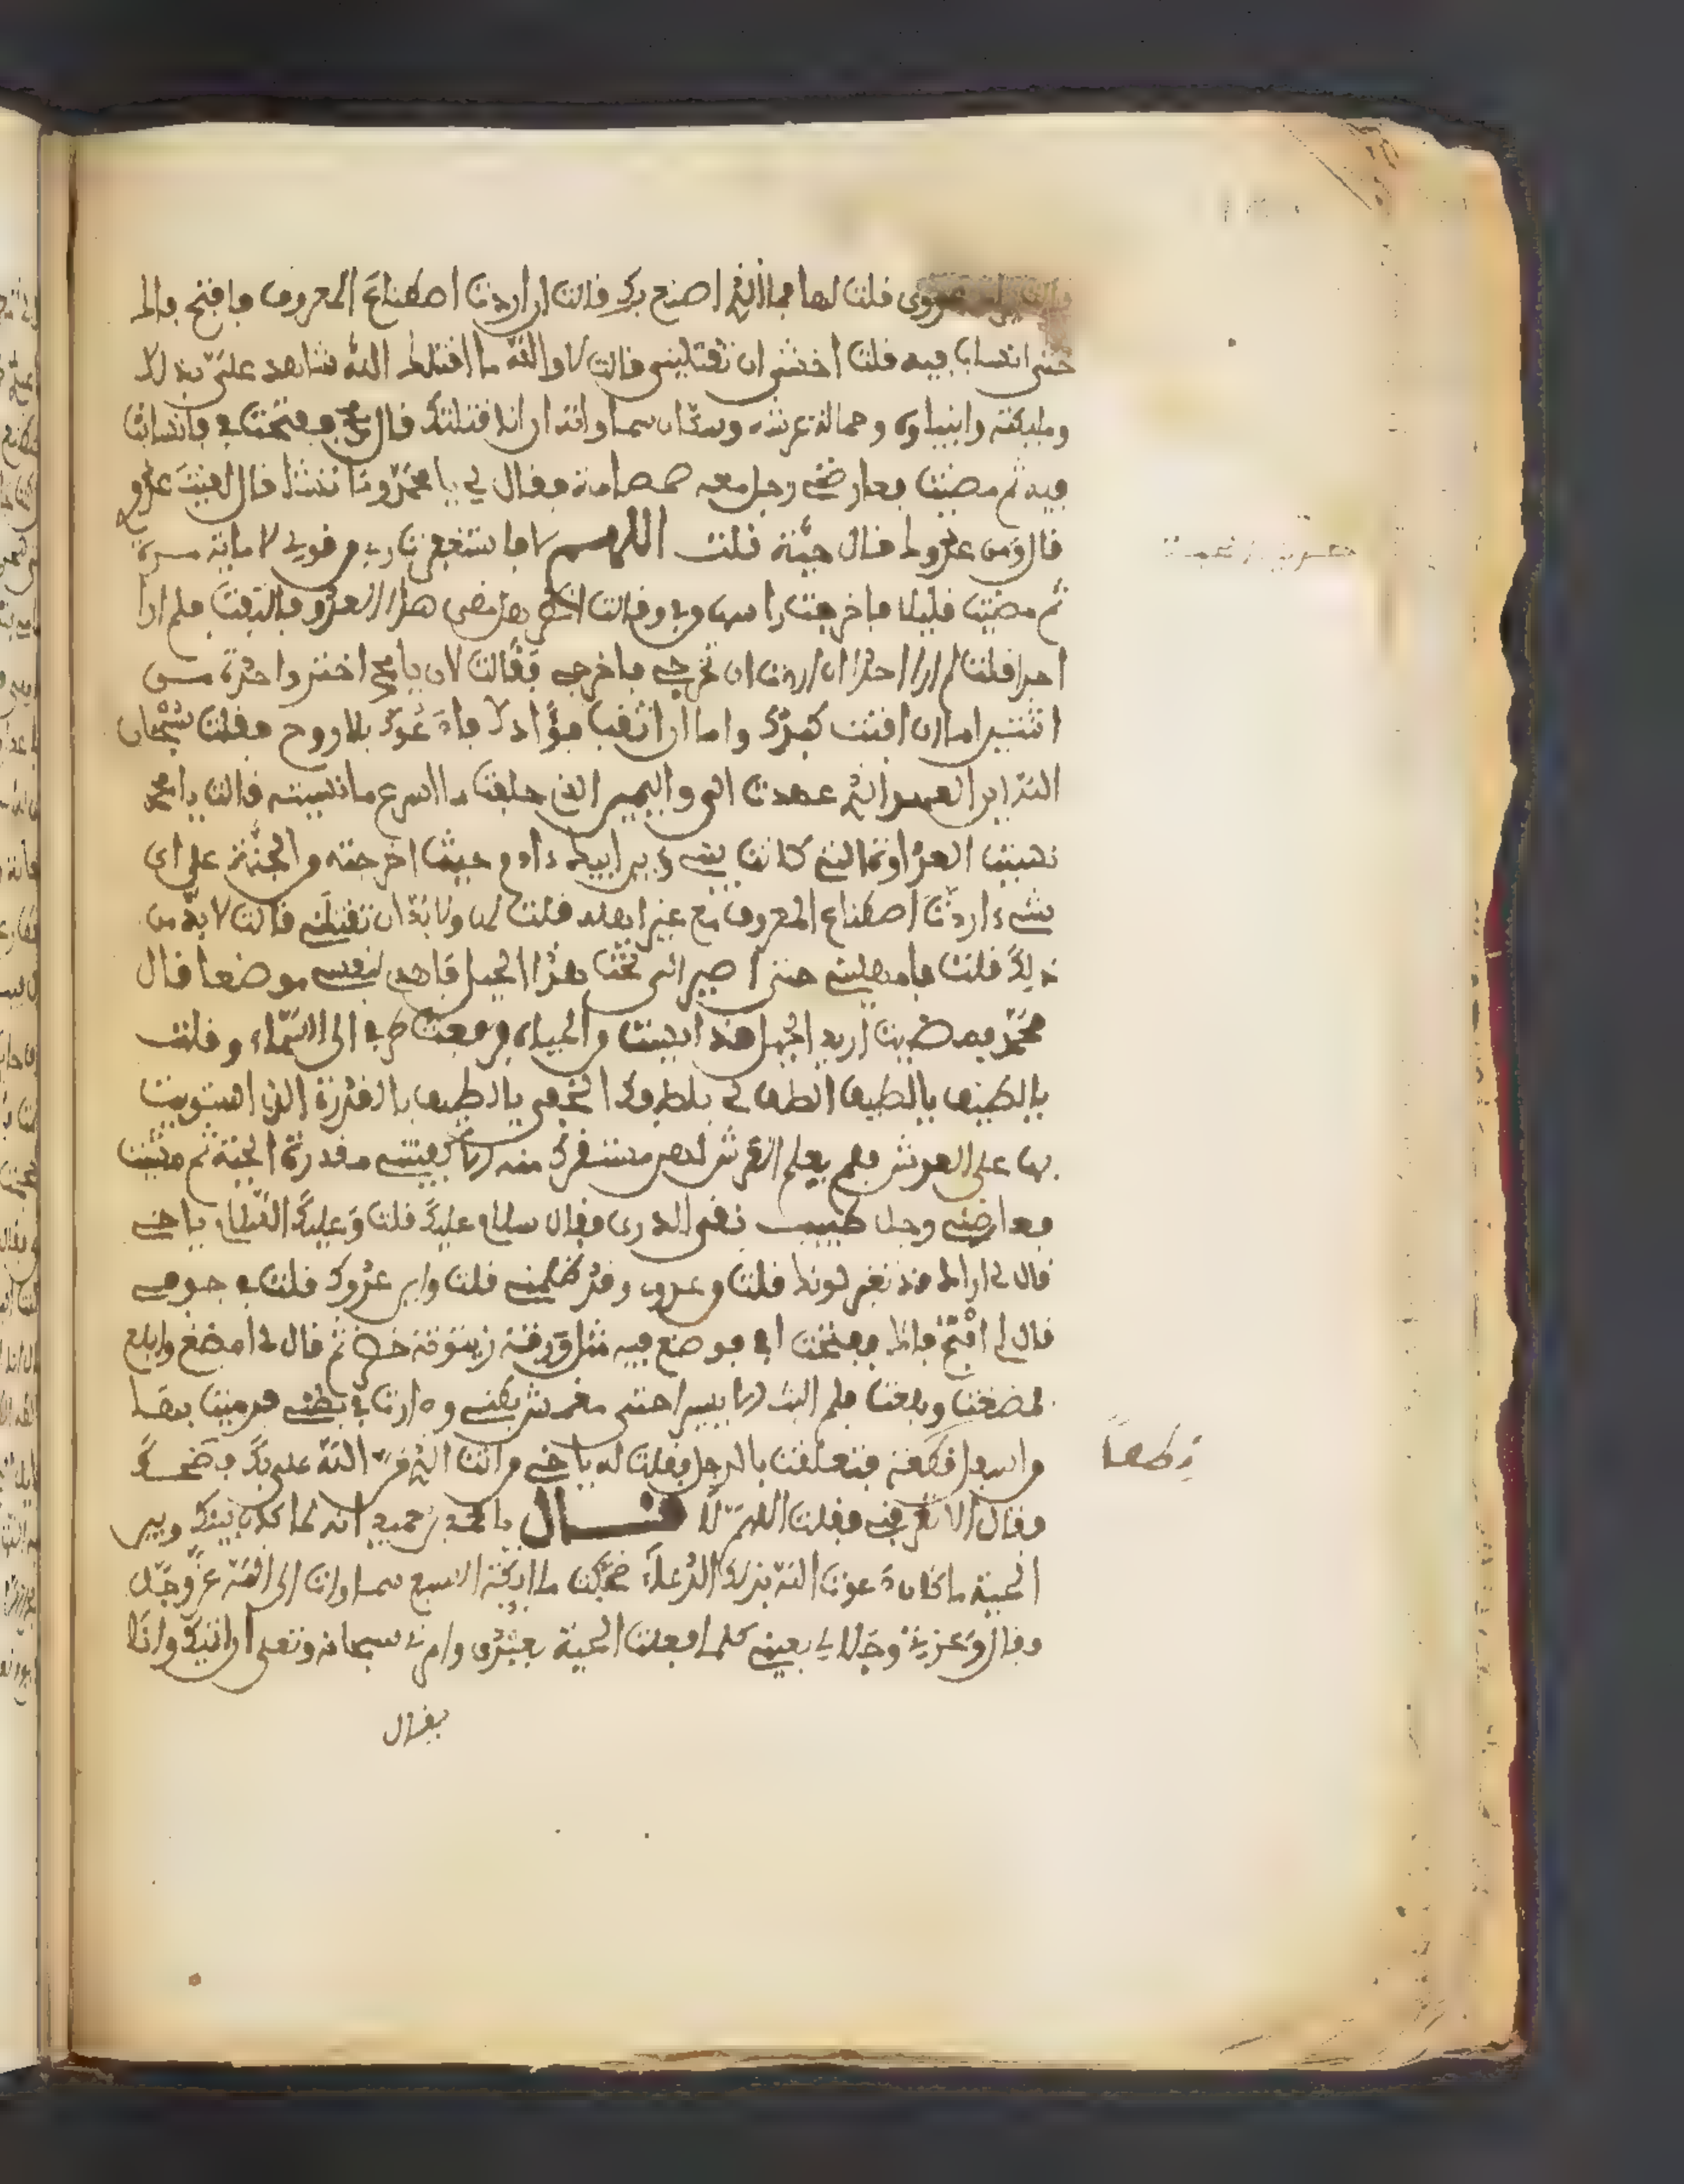 قالت يراني عدوى فلت لها فما الذى اصنع بك فالت ان اردت اصطناع المعروف فافتح فاك
حتى انساب فيه فلت اخشى ان تقتلينى فالت لا والله ما اقتلك الله شاهد على بذلك
وملئكته وانبياوه وحمالة عرشه وسكان سماواته ان انا قتلتك فال محمد ففتحت فى فانسابت
فيه ثم مضيت فعارضنى رجل معه صمصامة ففال لى يا محمد وما تشا فال لفيت عدو
فال ومن عدوك فال حية فلت اللهم لا فاستغفرت ربى من فولى لا ماية مرة
ثم مضيت فليلا فاخرجت راسها من فى وفالت انظر هل مضى هذا العدو فالتفت فلم ار
احدا فلت لم ار احدا ان اردت ان تخرجى فاخرجى ففالت الان يا محمد اختر واحدة من
اثنتين اما ان افتت كبدك واما ان اثقب فؤادك فادعوك بلا روح ففلت سبحان
الله اين العهد الذى عهدت الى واليمين الذى حلفت ما اسرع ما نسيته فالت يا محمد
نسيت العداوة التى كانت بينى وبين ابيك ادم حيث اخرجته من الجنة على اى
شىء اردت اصطناع المعروف مع غير اهله فلت لها ولا بد ان تقتلنى فالت لا بد من
ذلك فلت فامهلينى حتى اصير الى تحت هذا الجبل فامهد لنفسى موضعا فال
محمد فمضيت اريد الجبل وقد ايست من الحياه فرفعت طرفى الى السماء وفلت
يا لطيف يا لطيف الطف لى بلطفك الخفى يا لطيف بالقدرة التى استويت
بها على العرش فلم يعلم العرش اين مستقرك منه الا كفيتنى هذه الحية ثم مشيت
فعارضنى رجل طيب نفى الدرى ففال سلام عليك فلت وعليك السلام يا اخى
فال لى اراك فد تغير لونك فلت من عدوى وفد ظلمنى فلت واين عدوك فلت فى جوفى
فال لى افتح فاك ففتحت فى فوضع فيه مثل ورقة زيتونة خضرا ثم فال لى امضغ وابلع
فمضغت وبلعت فلم البث الا يسيرا حتى مغص بطنى ودارت فى بطنى فرميت بها
من اسفل فطعة فتعلفت بالرجل ففلت له يا اخى من انت الذى من الله على بك فضحك
وفال الا تعرفنى ففلت اللهم لا فال يا محمد بن حمير انه لما كان بينك وبين
الحية ما كان دعوت الله بذلك الدعاء ضجت ملايكة السبع سماوات الى الله عز وجل
وفال وعزتى وجلالى بعينى كلما فعلت الحية بعبدى وامرنى سبحانه وتعلى ان اتيك وانا
يفال
فطعا